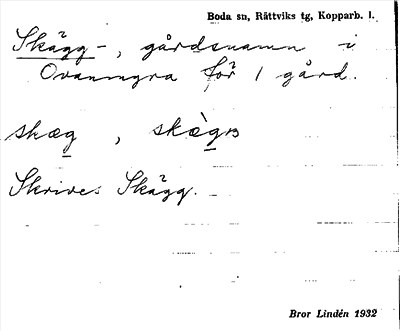 Boda sn, Rättviks tg, Kopparb. l.
Skägg-, gårdsnamn i
Ovanmyra för 1 gård.
skæg, skæ̀gɜ
Skrives Skägg.
Bror Lindén 1932